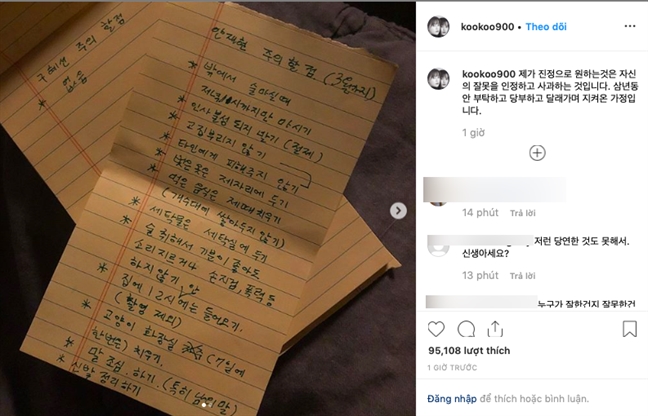 구혜선 주의 할점
* 없음
안재현 주의 할 점.
* 밖에서 술마실때
저녁 11시까지만 마시기
* 인사불성 되지 않기 (절제)
* 고집부리지 않기
* 타인에게 피해주지 않기
* 벗은 옷은 제자리에 두기
* 먹은 음식은 제때 치우기
(개수대에 쌓아두지 않기)
* 세탁물은 세탁실에 두기
* 술 취해서 기분이 좋아도
소리지르거나 손찌검, 폭력등
하지않기
* 집에 12시 안에는 들어오기.
(촬영 제외)
* 고양이 화장실 (7일에
한번은) 치우기.
* 말 조심. 하기. (특히 남의 말)
* 신발 정리하기
kookoo900 • Theo dõi
kookoo900 제가 진정으로 원하는것은 자신
의 잘못을 인정하고 사과하는 것입니다. 삼년동
안 부탁하고 당부하고 달래가며 지켜온 가정입
니다.
1 giờ
14 phút Trả lời
저런 당연한 것도 못해서.
신생아세요?
13 phút Trả lời
누구가 잘한건지 잘못한건
95,108 lượt thích
1 GIỜ TRƯỚC
Đăng nhập để thích hoặc bình luận.